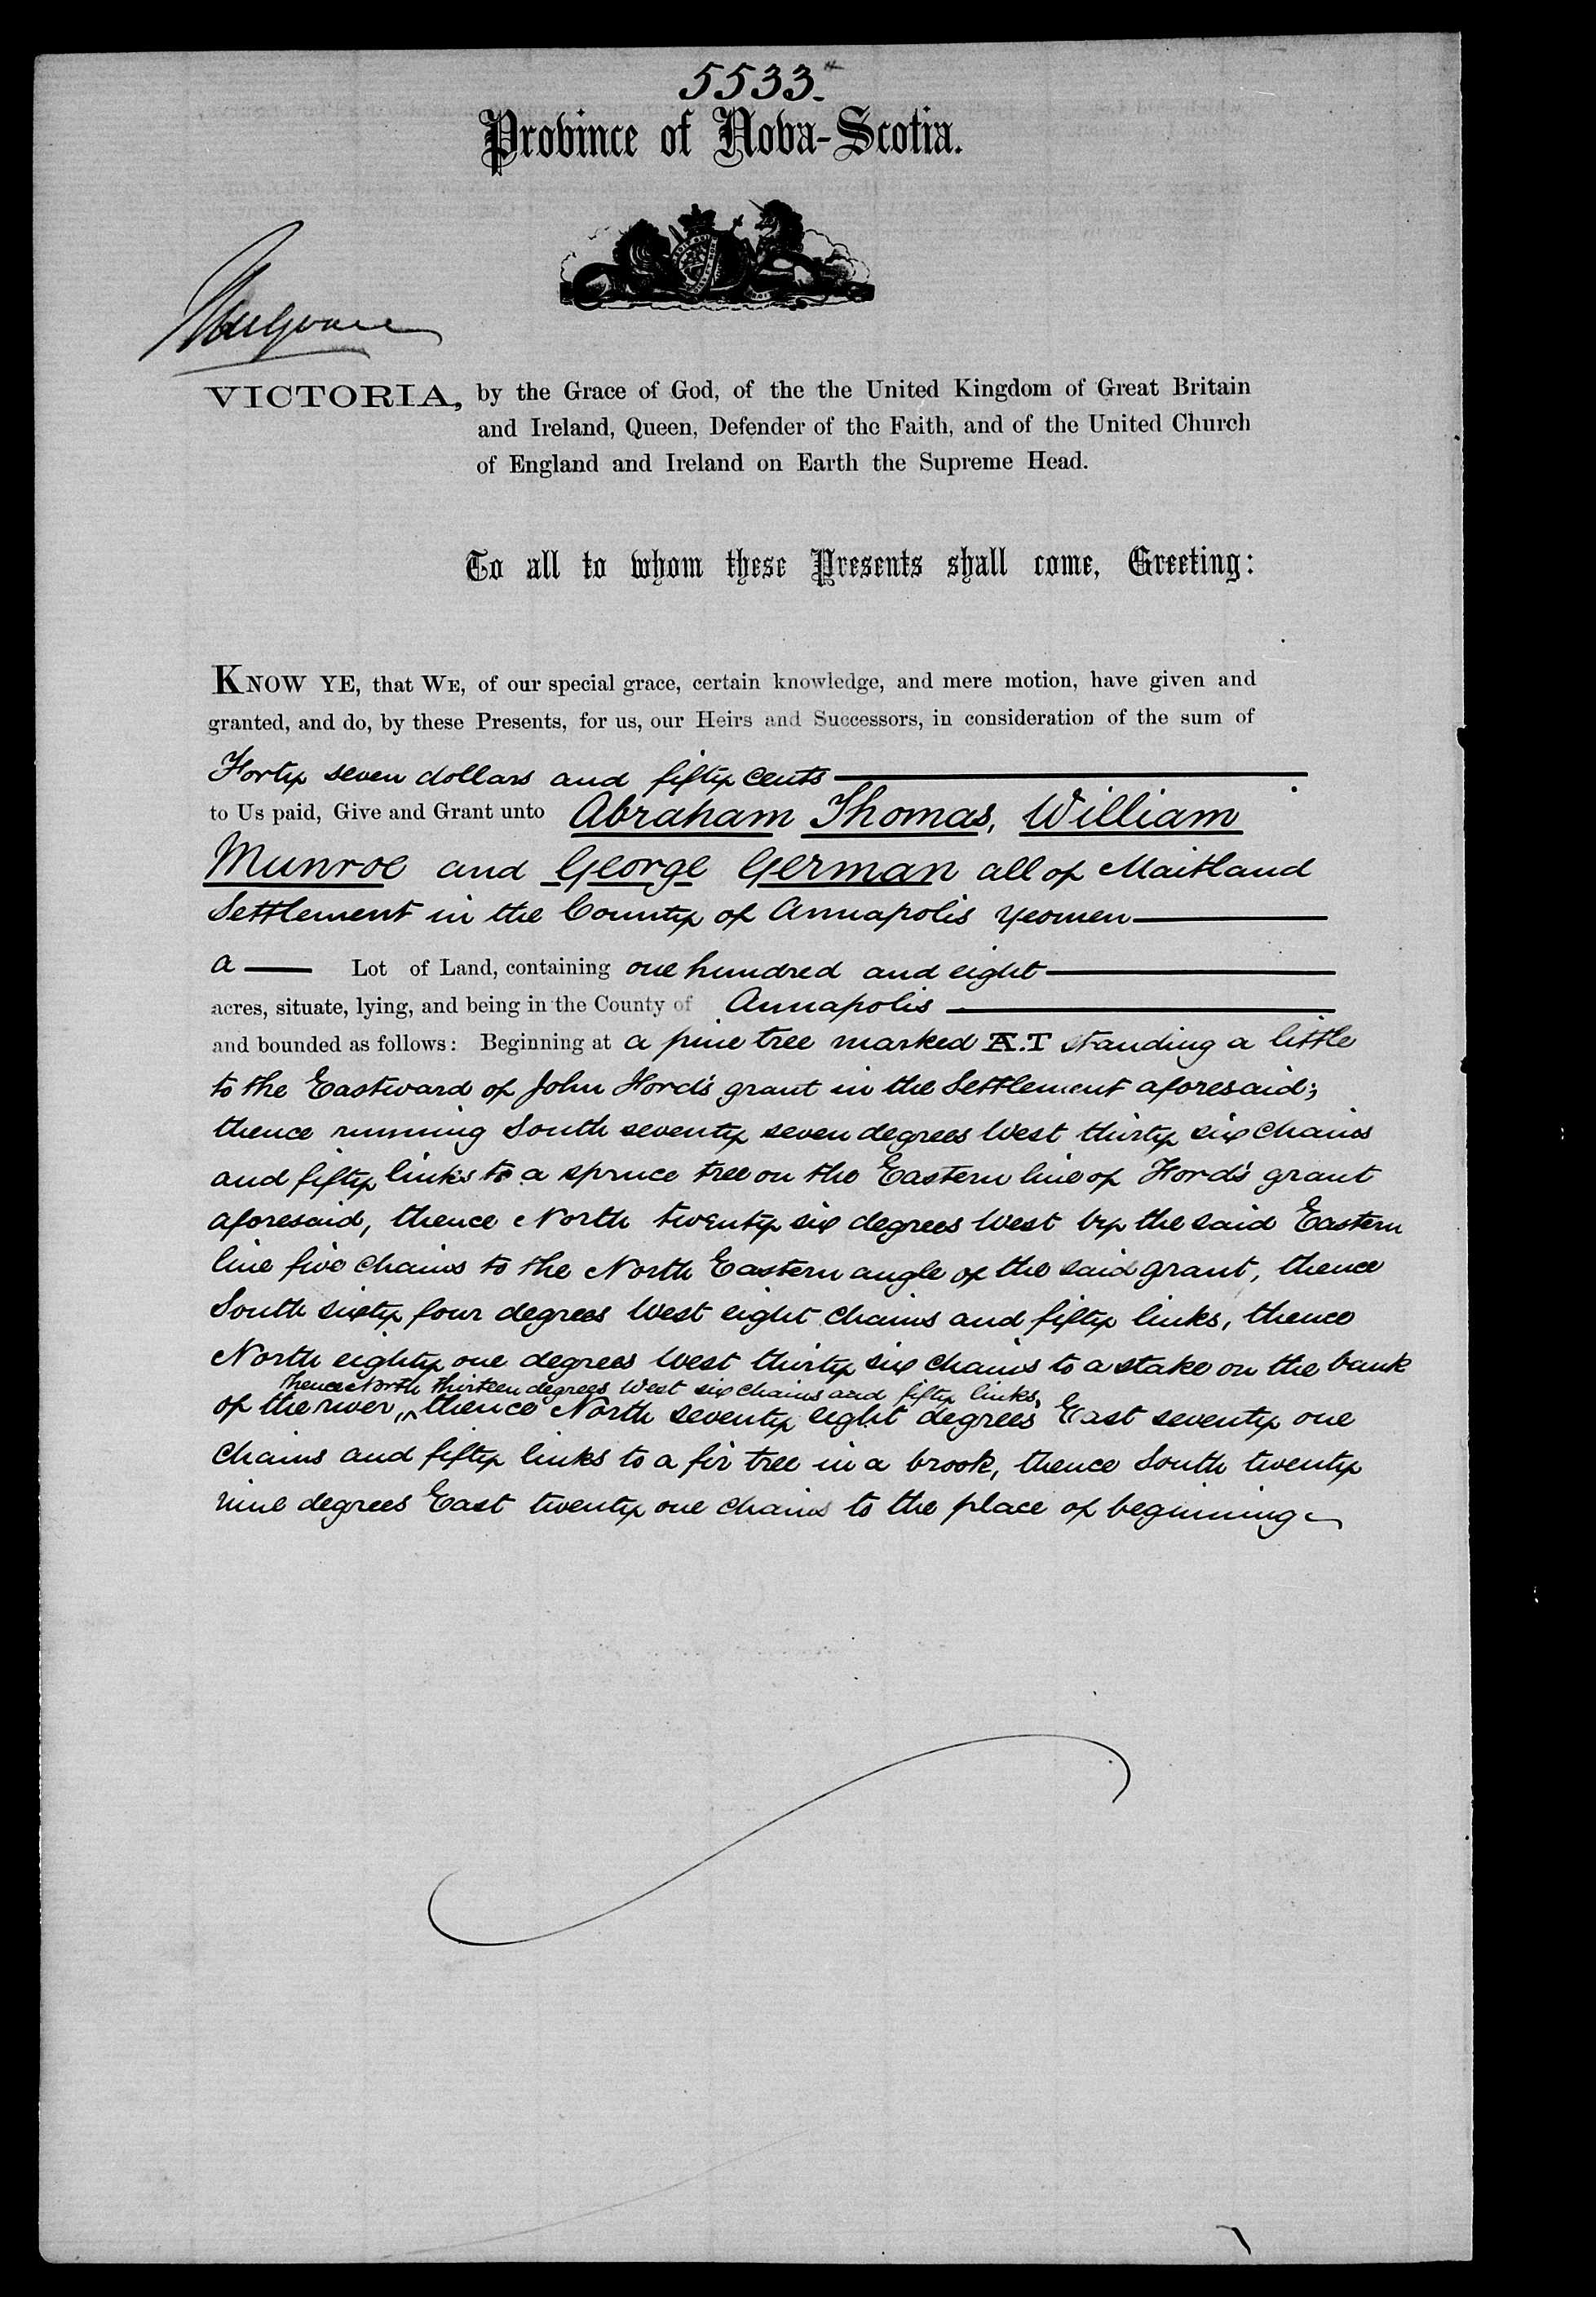 5533.
Province of Nova-Scotia.
Mulgrave
VICTORIA, by the Grace of God, of the the United Kingdom of Great Britain
and Ireland, Queen, Defender of the Faith, and of the United Church
of England and Ireland on Earth the Supreme Head.
To all to whom these Presents shall come, Greeting:
KNOW YE, that WE, of our special grace, certain knowledge, and mere motion, have given and
granted, and do, by these Presents, for us, our Heirs and Successors, in consideration of the sum of
Forty seven dollars and fifty cents
to Us paid, Give and Grant unto Abraham Thomas, William
Munroe and George German all of Maitland
Settlement in the County of Annapolis yeomen
a Lot of Land, containing one hundred and eight
acres, situate, lying, and being in the County of Annapolis
and bounded as follows: Beginning at a pine tree marked A.T standing a little
to the Eastward of John Hord's grant in the Settlement aforesaid;
thence running South seventy seven degrees West thirty six chains
and fifty links to a spruce tree on the Eastern line of Hord's grant
aforesaid, thence North twenty six degrees West by the said Eastern
line five chains to the North Eastern angle of the said grant, thence
South sixty four degrees West eight chains and fifty links, thence
North eighty one degrees West thirty six chains to a stake on the bank
thence North thirteen degrees West six chains and fifty links,
of the river, thence North seventy eight degrees East seventy one
chains and fifty links to a fir tree in a brook, thence South twenty
nine degrees East twenty one chains to the place of beginning